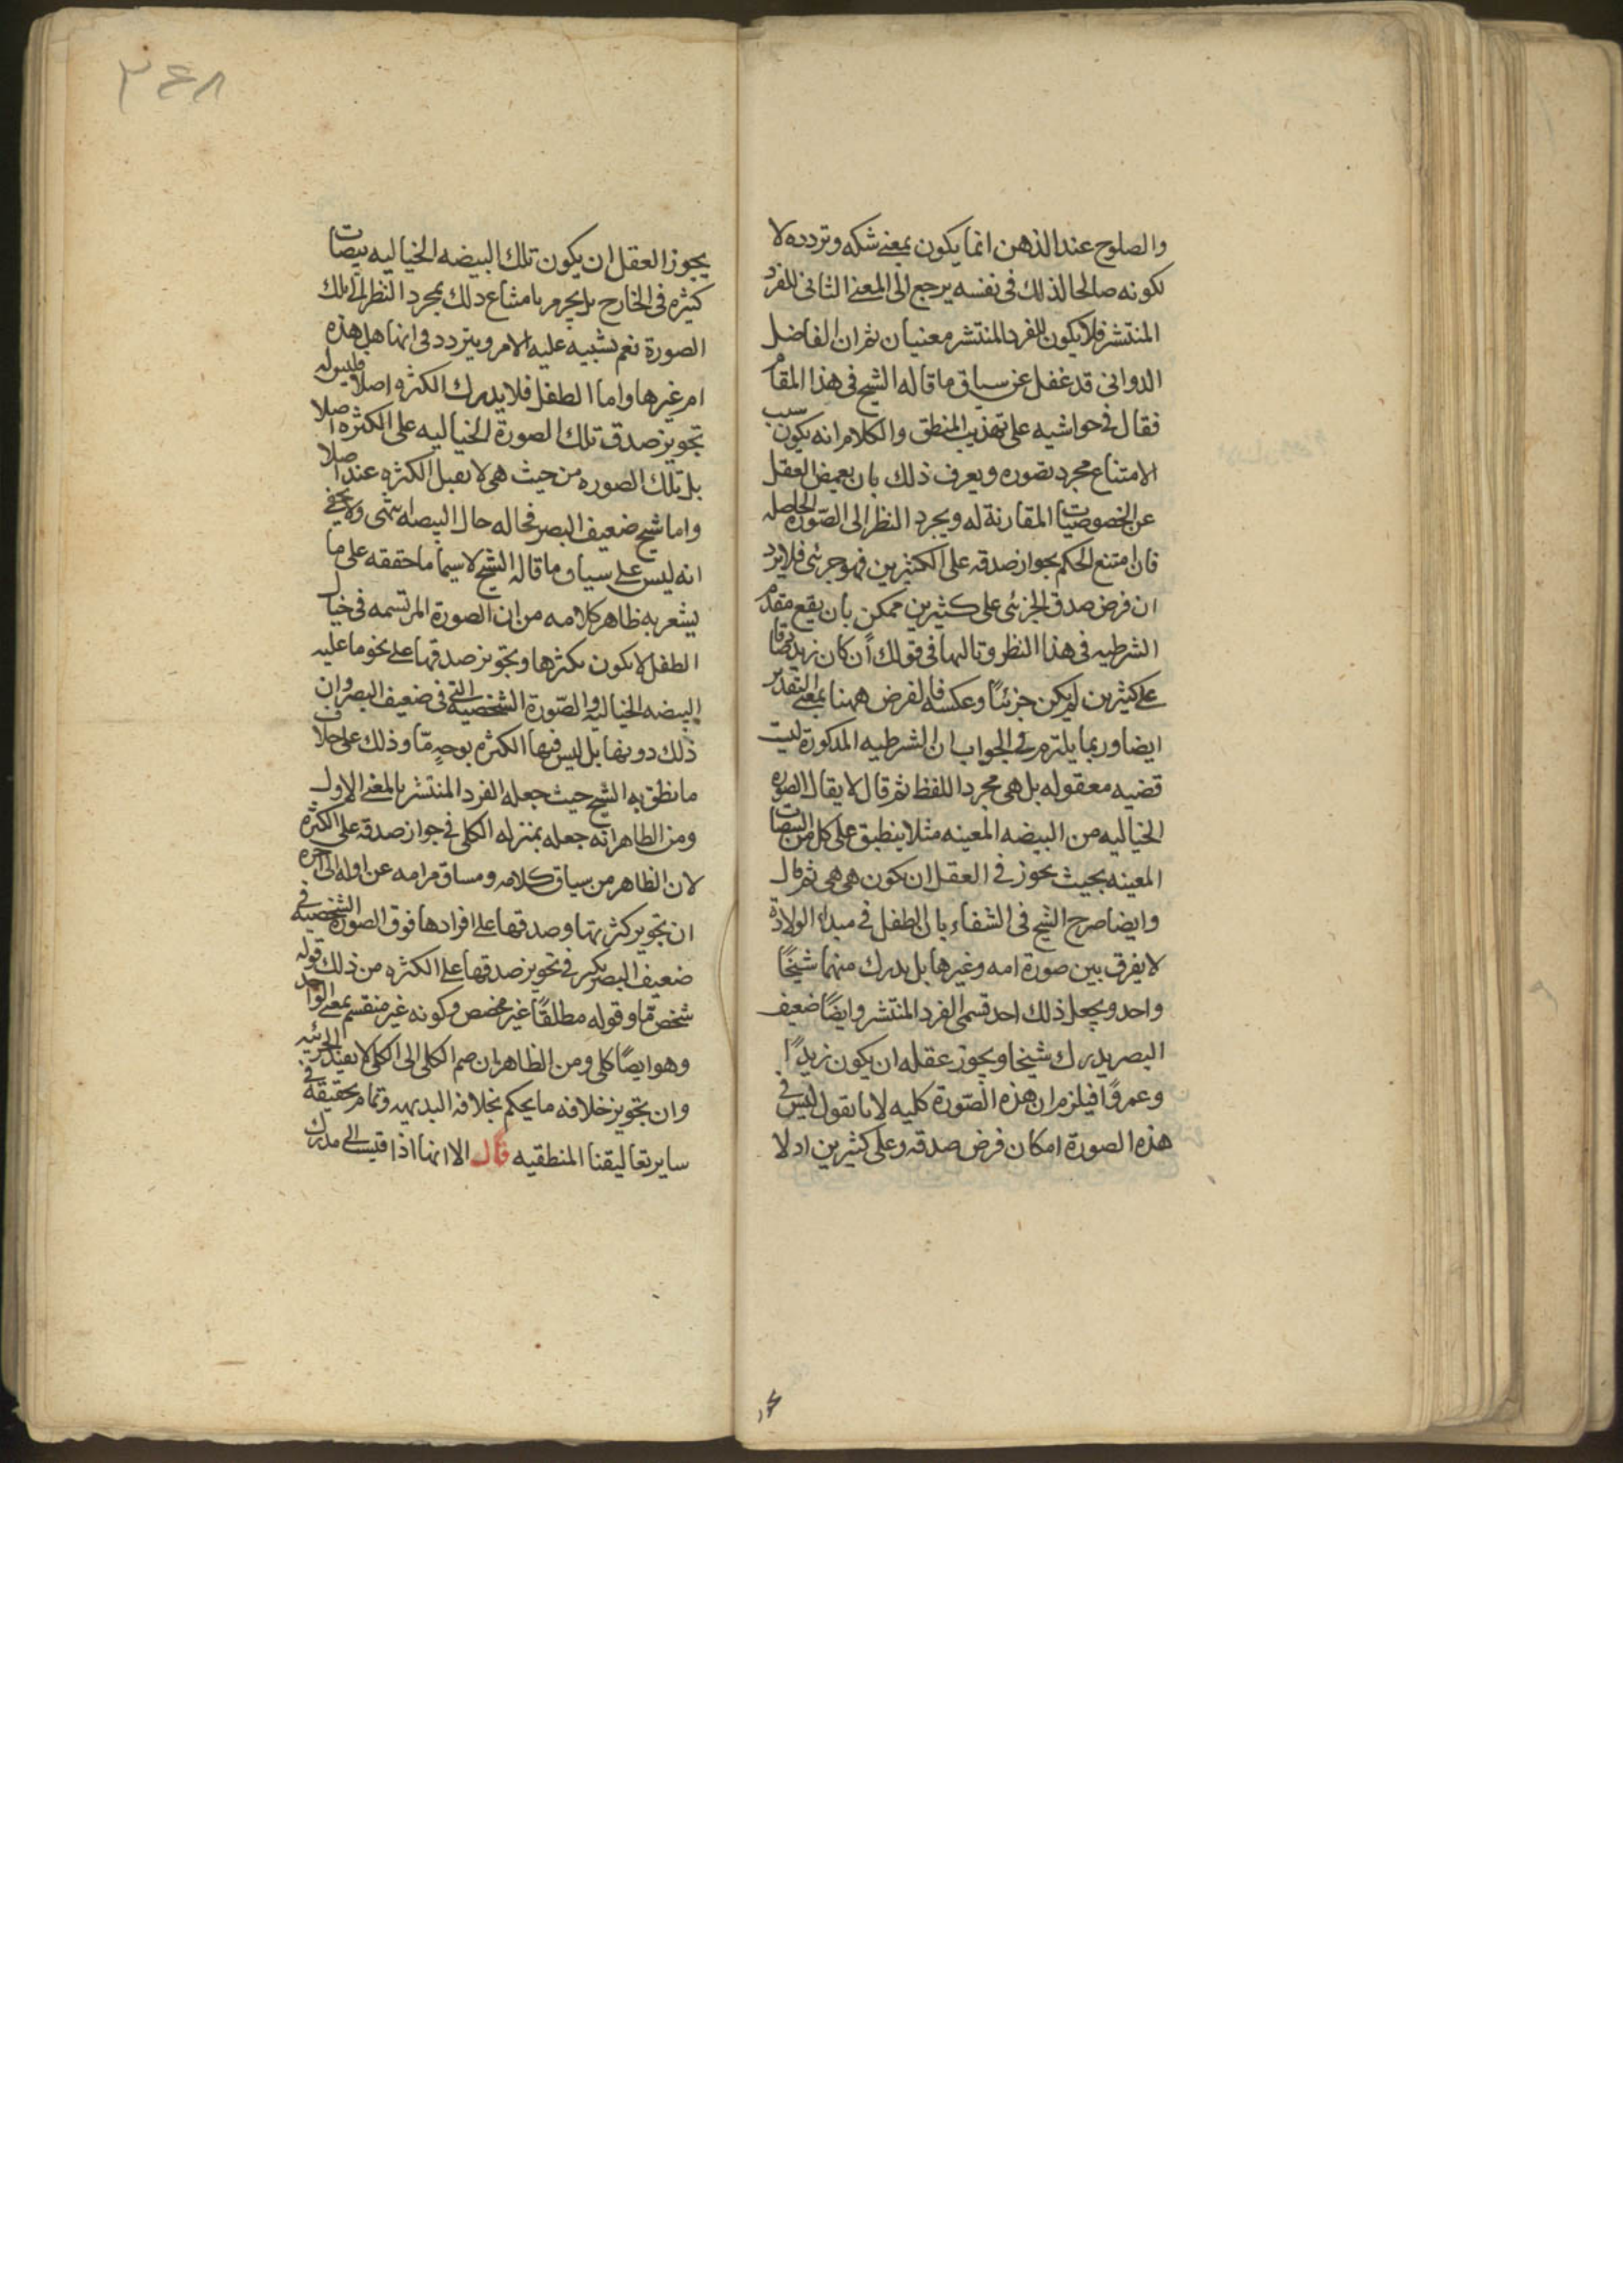 والصلوح عند الذهن انما يكون بمعنى شكه وتردده لا
لكونه صالحا لذلك فى نفسه يرجع الى المعنى الثانى للفرد
المنتشر فلا يكون للفرد المنتشر معنيان ثم ان الفاضل
الدوانى قد غفل عن سياق ما قاله الشيخ فى هذا المقام
فقال فى حواشيه على تهذيب المنطق والكلام انه يكون سبب
الامتناع مجرد تصوره ويعرف ذلك بان يغمض العقل
عن الخصوصيات المقارنة له ويجرد النظر الى الصورة الحاصله
فان امتنع الحكم بجواز صدقه على الكثيرين فهو جزئى فلا يرد
ان فرض صدق الجزئى على كثيرين ممكن بان يقع مقدم
الشرطيه فى هذا النظر وتاليها فى قولك ان كان زيد
على كثيرين لم يكن جزئيا وعكسه فالفرض ههنا بمعنى التقدير
ايضا وربما يلتزم فى الجواب ان الشرطيه المذكورة ليت
قضيه معقوله بل هى مجرد اللفظ ثم قال لا يقال الصوره
الخياليه من البيضه المعينه مثلا ينطبق على كل من البيضات
المعينه بحيث يجوز فى العقل ان يكون هى هى ثم قال
وايضا صرح الشيخ فى الشفاء بان الطفل فى مبداء الولادة
لا يفرق بين صورة امه وغيرها بل يدرك منهما شيخًا
واحد ويجعل ذلك احد قسمى الفرد المنتشر وايضًا ضعيف
البصر يدرك شيخا ويجوز عقله ان يكون زيدًا
وعمروًا فيلزم ان هذه الصّورة كليه لانا نقول ليس فى
هذه الصورة امكان فرض صدقه وعلى كثيرين اد لا
٣٤٨
يجوز العقل ان يكون تلك البيضه الخياليه بيضات
كثيره فى الخارج بل يجزم بامتناع ذلك بمجرد النظر الى تلك
الصورة نعم يشبيه عليه الامر ويتردد فى انها هل هذه
ام غيرها واما الطفل فلا يدرك الكثره اصلا فليس له
تجويز صدق تلك الصورة الخياليه على الكثره اصلا
بل تلك الصوره من حيث هى لا يقبل الكثره عنده اصلا
واما شبح ضعيف البصر فحاله حال البيضه انتهى ولا يخفى
انه ليس على سياق ما قاله الشيخ لا سيما ما حققه على ما
يشعر به ظاهر كلامه من ان الصورة المرتسمه فى خيال
الطفل لا يكون تكثرها وتجويز صدقها على نحو ما عليه
البيضه الخياليه والصّورة الشخصية التى فى ضعيف البصر وان
ذلك دونها بل ليس فيها الكثره بوجهٍ مّا وذلك على خلاف
ما نطق به الشيخ حيث جعله الفرد المنتشر بالمعنى الاول
ومن الظاهر انه جعله بمنزله الكلى فى جواز صدقه على الكثره
لان الظاهر من سياق كلامه ومساق مرامه عن اوله الى آخره
ان تجويز كثرتها وصدقها على افرادها فوق الصورة الشخصية فى
ضعيف البصر فى تجويز صدقها على الكثره من ذلك قوله
شخص مّا وقوله مطلقًا غير مخصص وكونه غير منقسم بمعنى الواحد
وهو ايضًا كلى ومن الظاهر ان ضم الكلى الى الكلى لا يفيد الجزئيه
وان تجويز خلافه ما يحكم بخلافه البديهه وتمام تحقيقه فى
ساير تعاليقنا المنطقيه قال الا انها اذا قيست الى مدرك